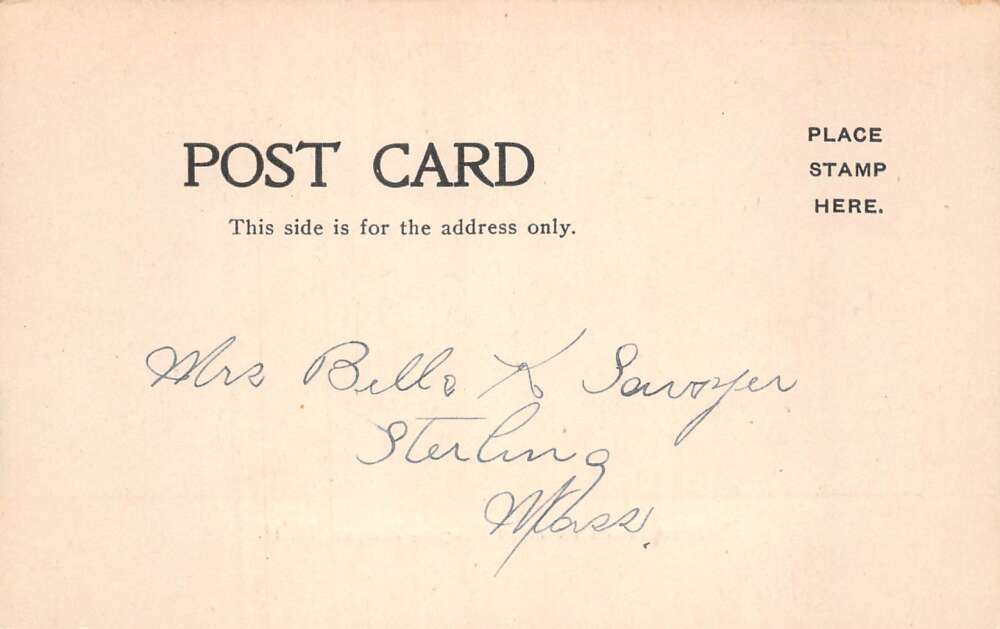 POST CARD
This side is for the address only.
PLACE
STAMP
HERE.
Mrs Belle K Sawyer
Sterling
Mass.